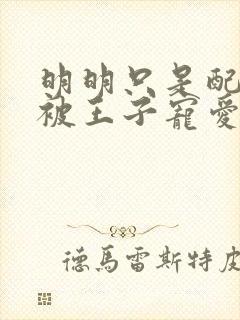 明明只是配
被王子寵愛
德馬雷斯特皮